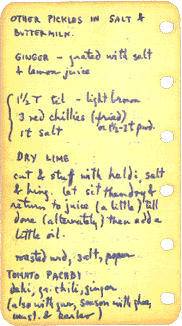 OTHER PICKLES IN SALT &
BUTTERMILK.
GINGER – grated with salt
& lemon juice
1½ T til – light brown
3 red chillies (fried)
or 1½-2t pwd.
1t salt
DRY LIME
cut & stuff with haldi, salt
& hing. let sit then dry &
return to juice (a little) till
done (alternately) then add a
little oil.
roasted urd, salt, pepper
TOMATO PACHDI
dahi, gr. chili, ginger
(also with gur, season with
& )